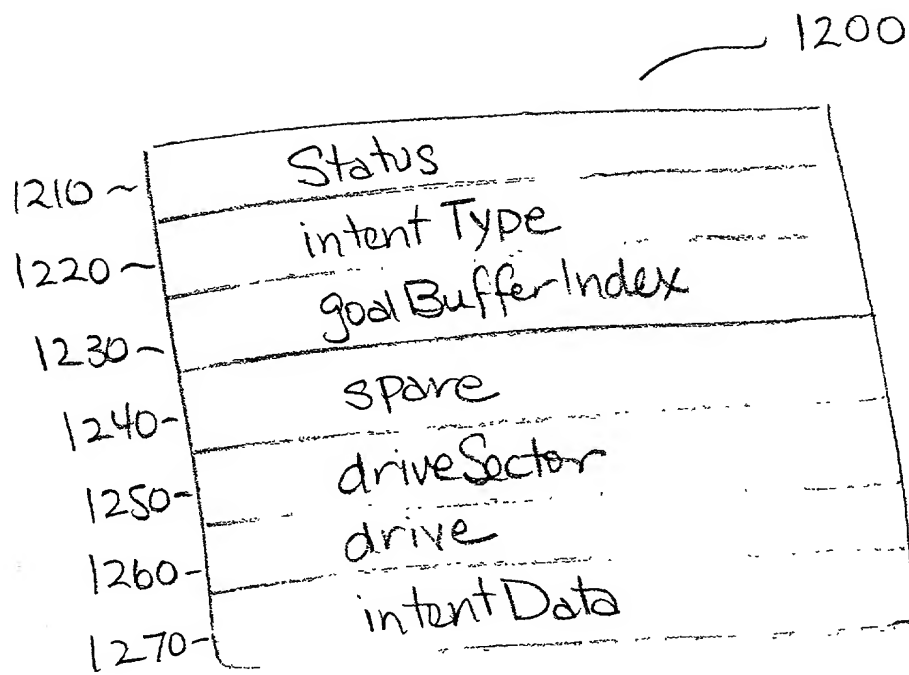 1200
1210 Status
1220 intentType
1230 goalBufferIndex
1240 spare
1250 driveSector
1260 drive
1270 intentData